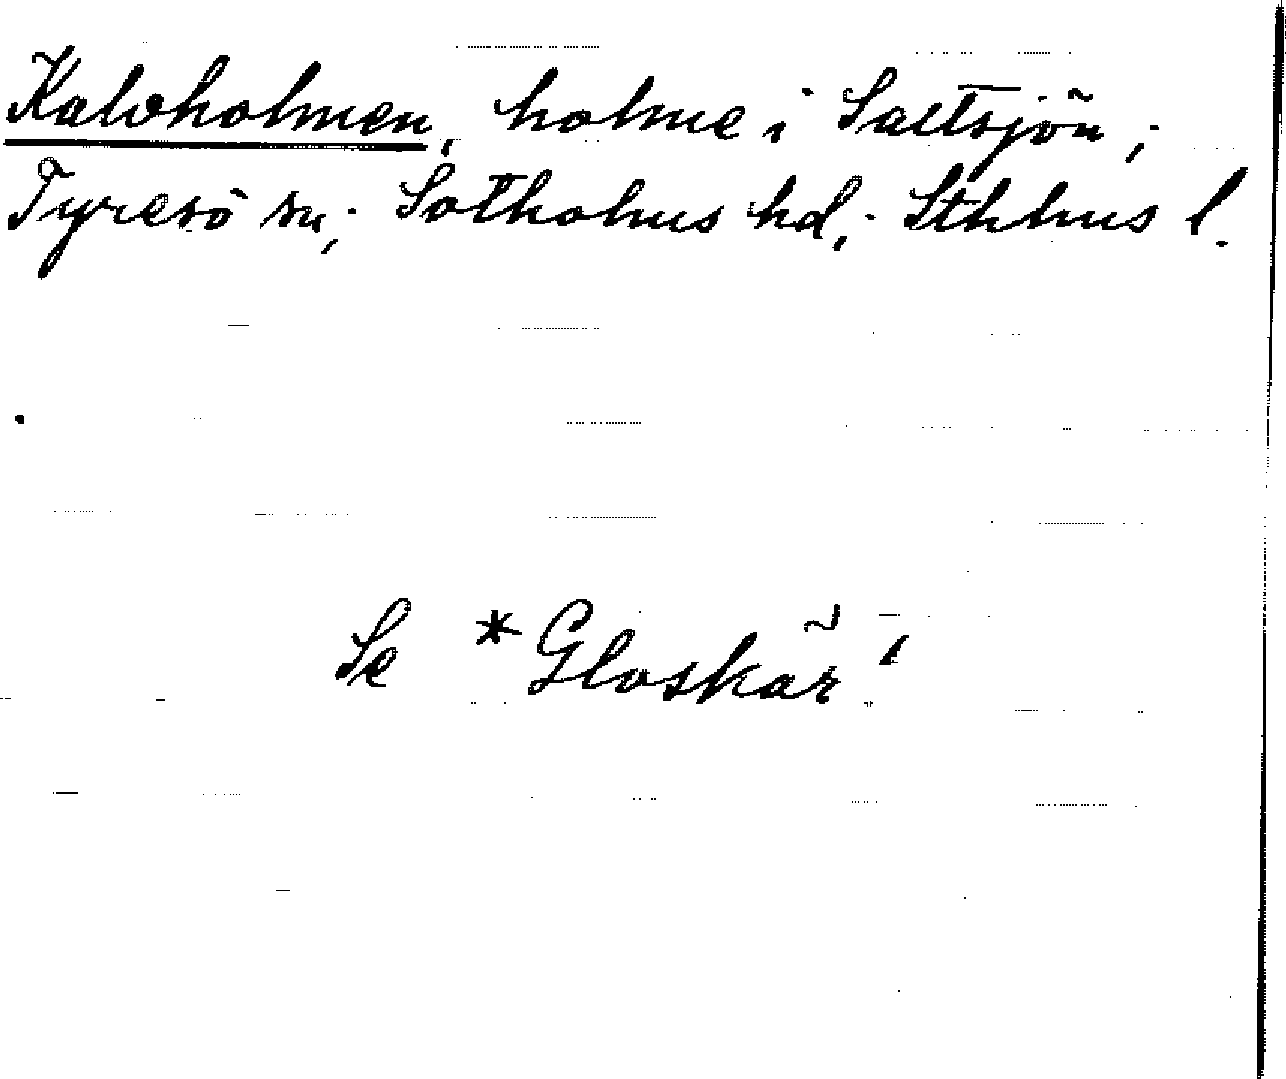 Kalvholmen, holme i Saltsjön;
Tyresö sn; Sotholms hd; Sthlms l.
Se *Gloskär!